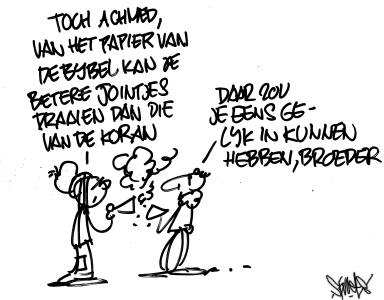 TOCH ACHMED,
VAN HET PAPIER VAN
DE BIJBEL KAN JE
BETERE JOINTJES
DRAAIEN DAN DIE
VAN DE KORAN
DAAR ZOU
JE EENS GE-
LIJK IN KUNNEN
HEBBEN, BROEDER